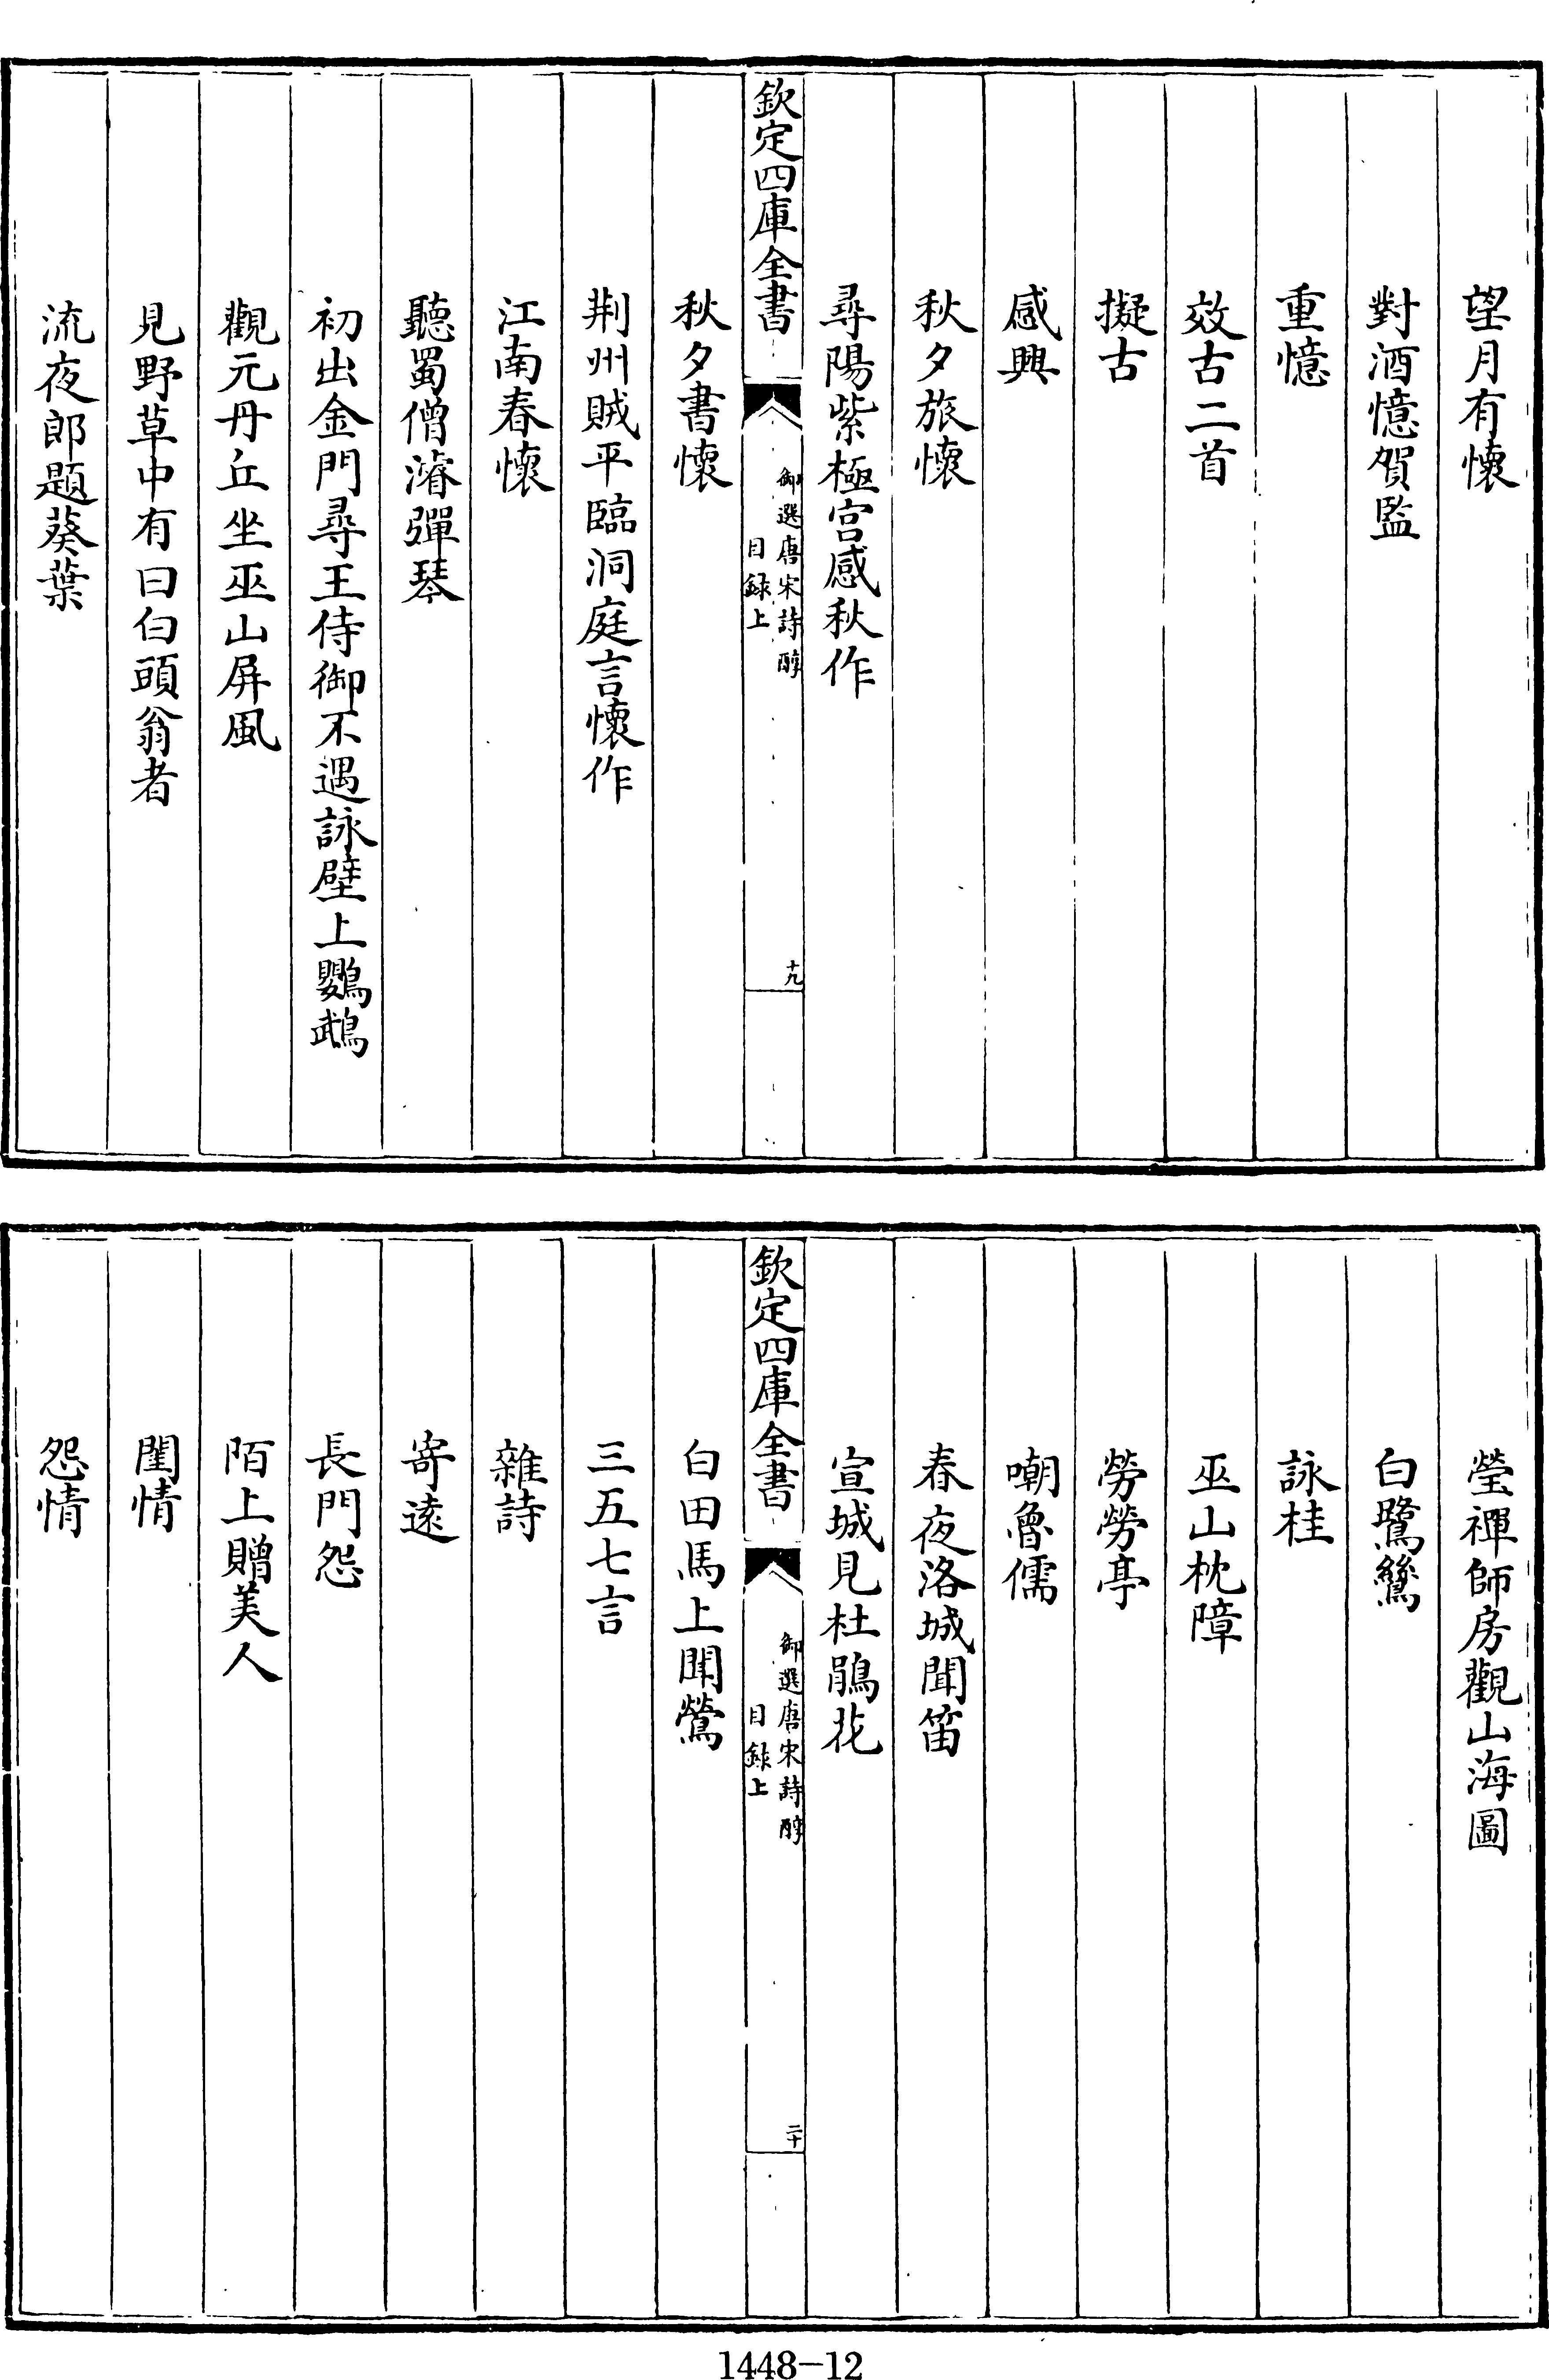 望月有懷
對酒憶賀監
重憶
效古二首
擬古
感興
秋夕旅懷
尋陽紫極宮感秋作
欽定四庫全書
御選唐宋詩醇
目録上
十九
秋夕書懷
荆州賊平臨洞庭言懷作
江南春懷
聽蜀僧濬彈琴
初出金門尋王侍御不遇詠壁上鸚鵡
觀元丹丘坐巫山屏風
見野草中有曰白頭翁者
流夜郎題葵葉
瑩禪師房觀山海圖
白鷺鷥
詠桂
巫山枕障
勞勞亭
嘲魯儒
春夜洛城聞笛
宣城見杜鵑花
欽定四庫全書
御選唐宋詩醇
目録上
二十
白田馬上聞鶯
三五七言
雜詩
寄遠
長門怨
陌上贈美人
閨情
怨情
1448-12